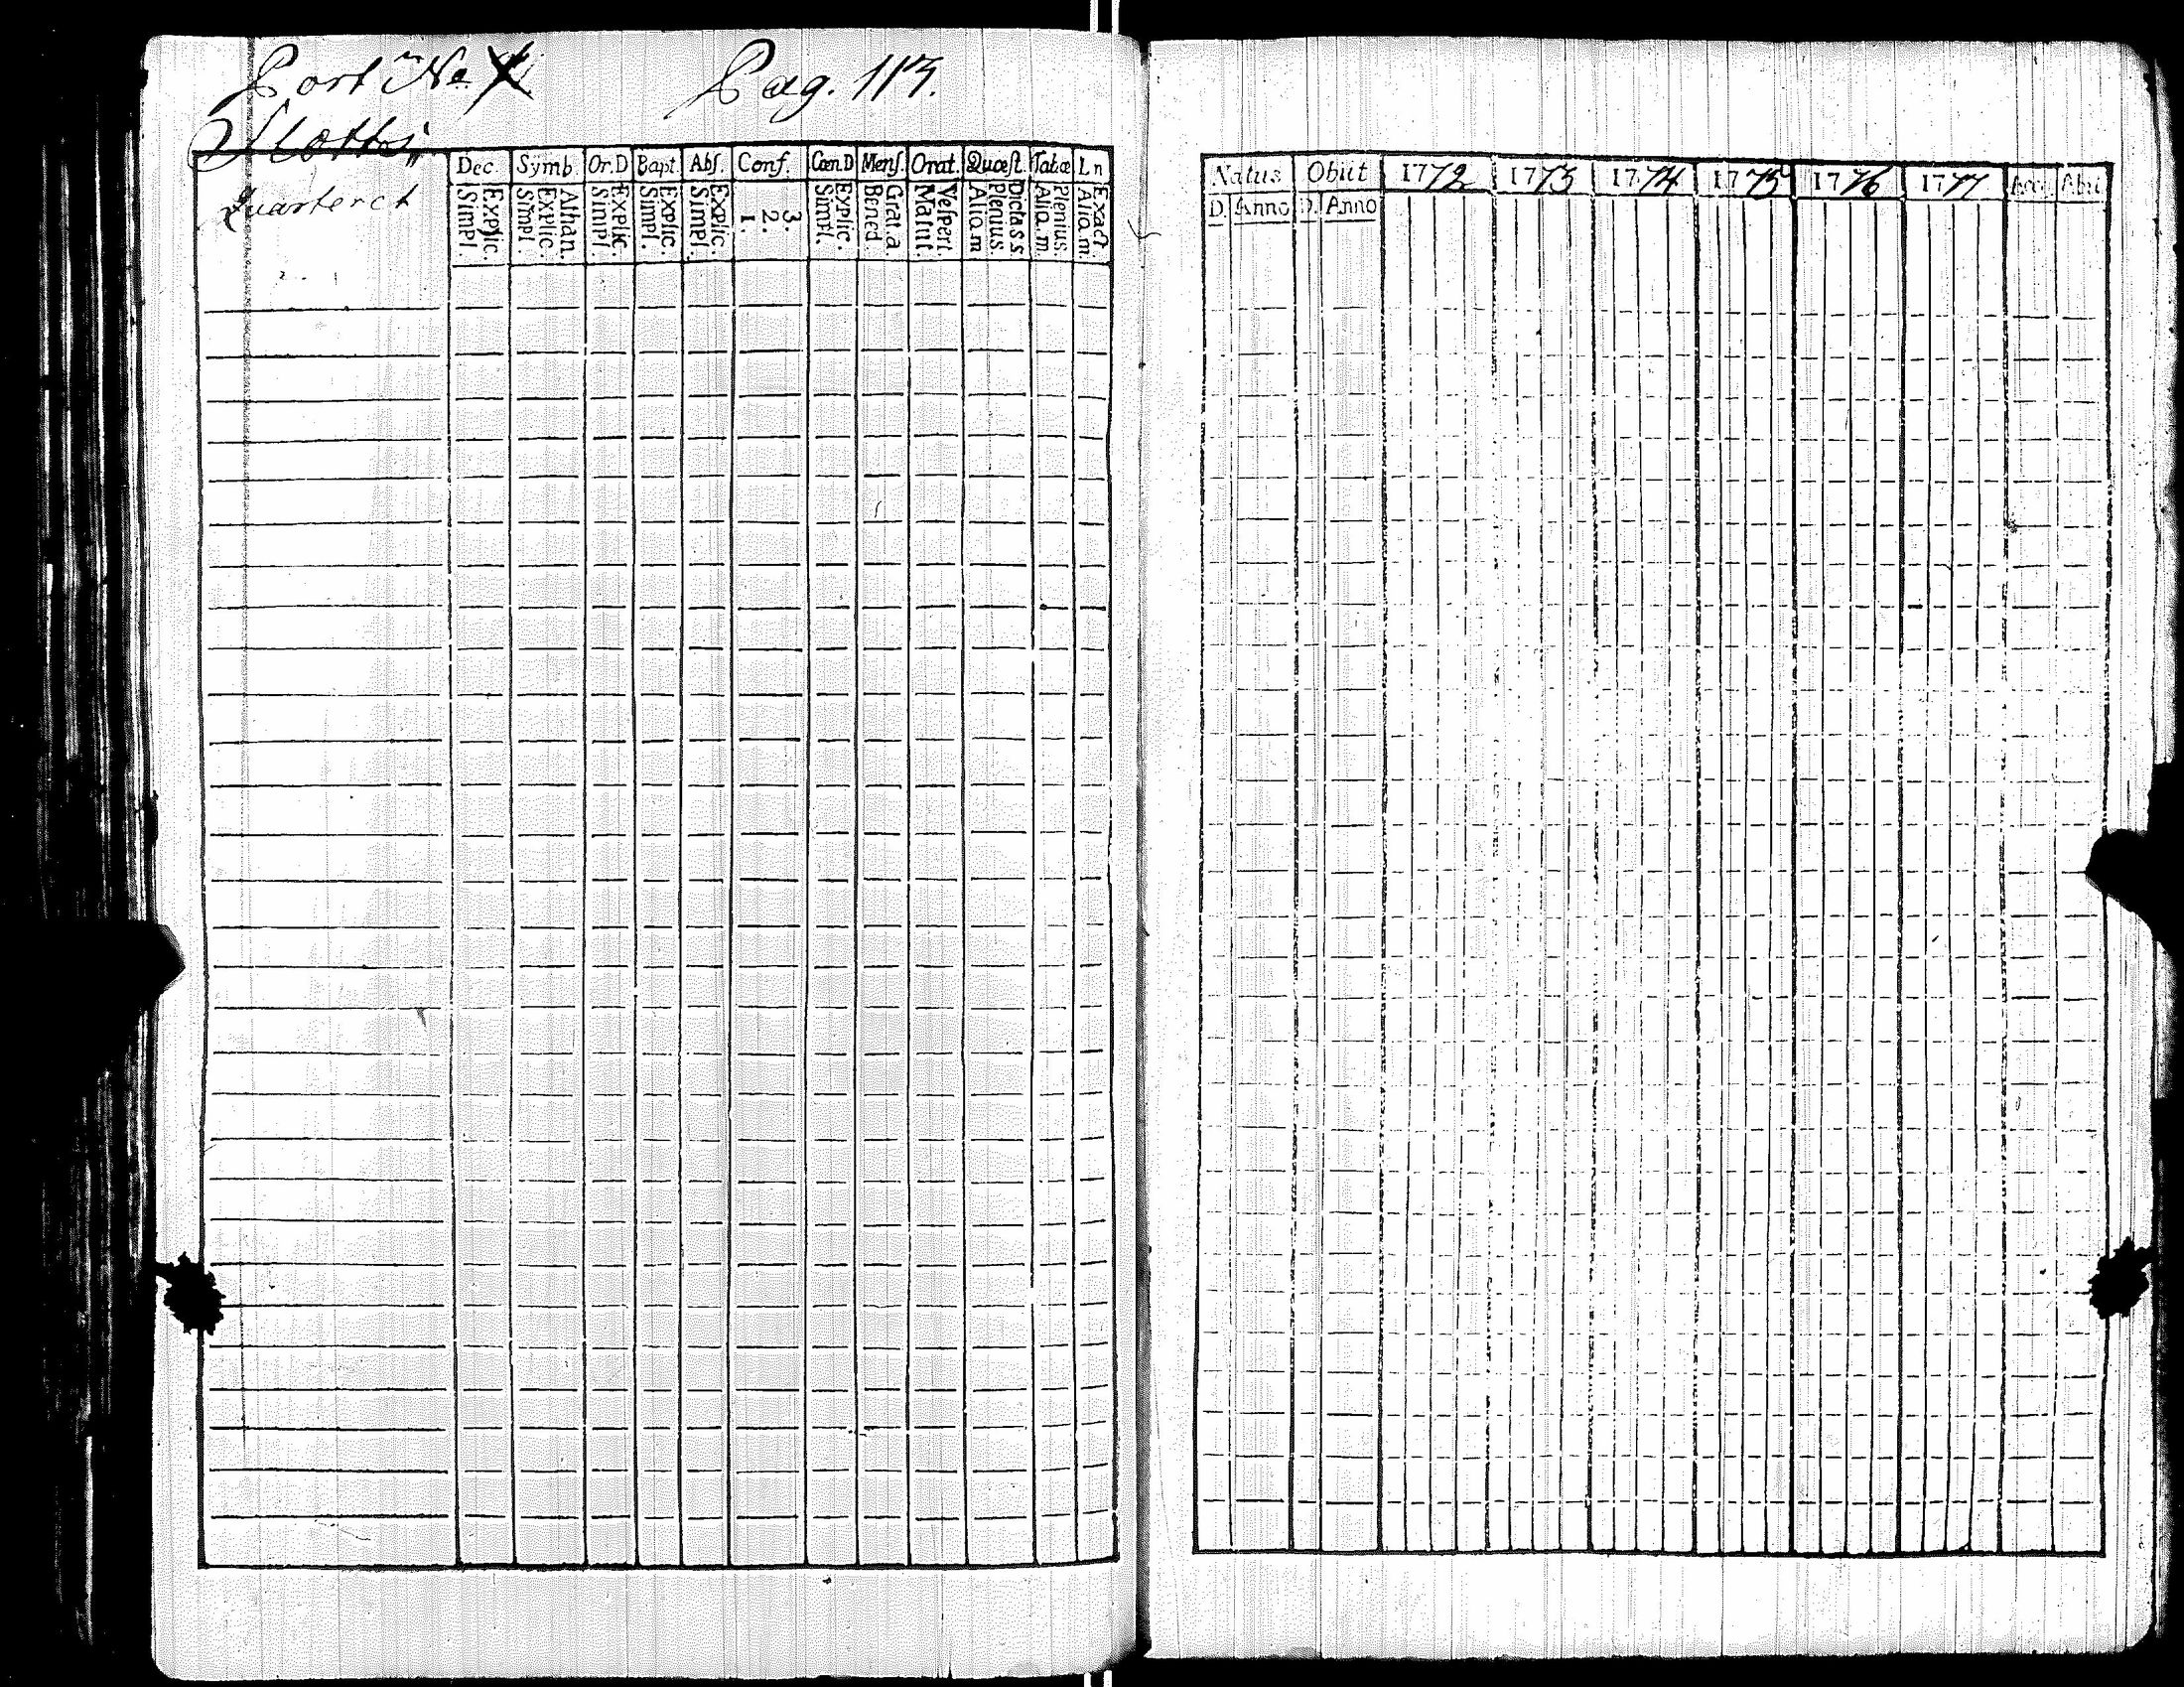 Port. No
Pag. 113.
Slottz
Quarteret
Dec. Symb. Or.D Bapt. Abſ. Conf. Cœn.D Menſ. Orat. Quæſt. Tabæ Ln
Simpl. Explic. Simpl. Explic. Athan. Simpl. Explic. Simpl. Explic. Simpl. Explic. 1. 2. 3. Simpl. Explic. Bened. Grat.a Matut. Veſpert. Alio m Plenius. Dicta s s Alia.m. Plenius. Alia m. Exact.
Natus Obiit 1772 1773 1774 1775 1776 1777 Acc. Abii
D. Anno D. Anno